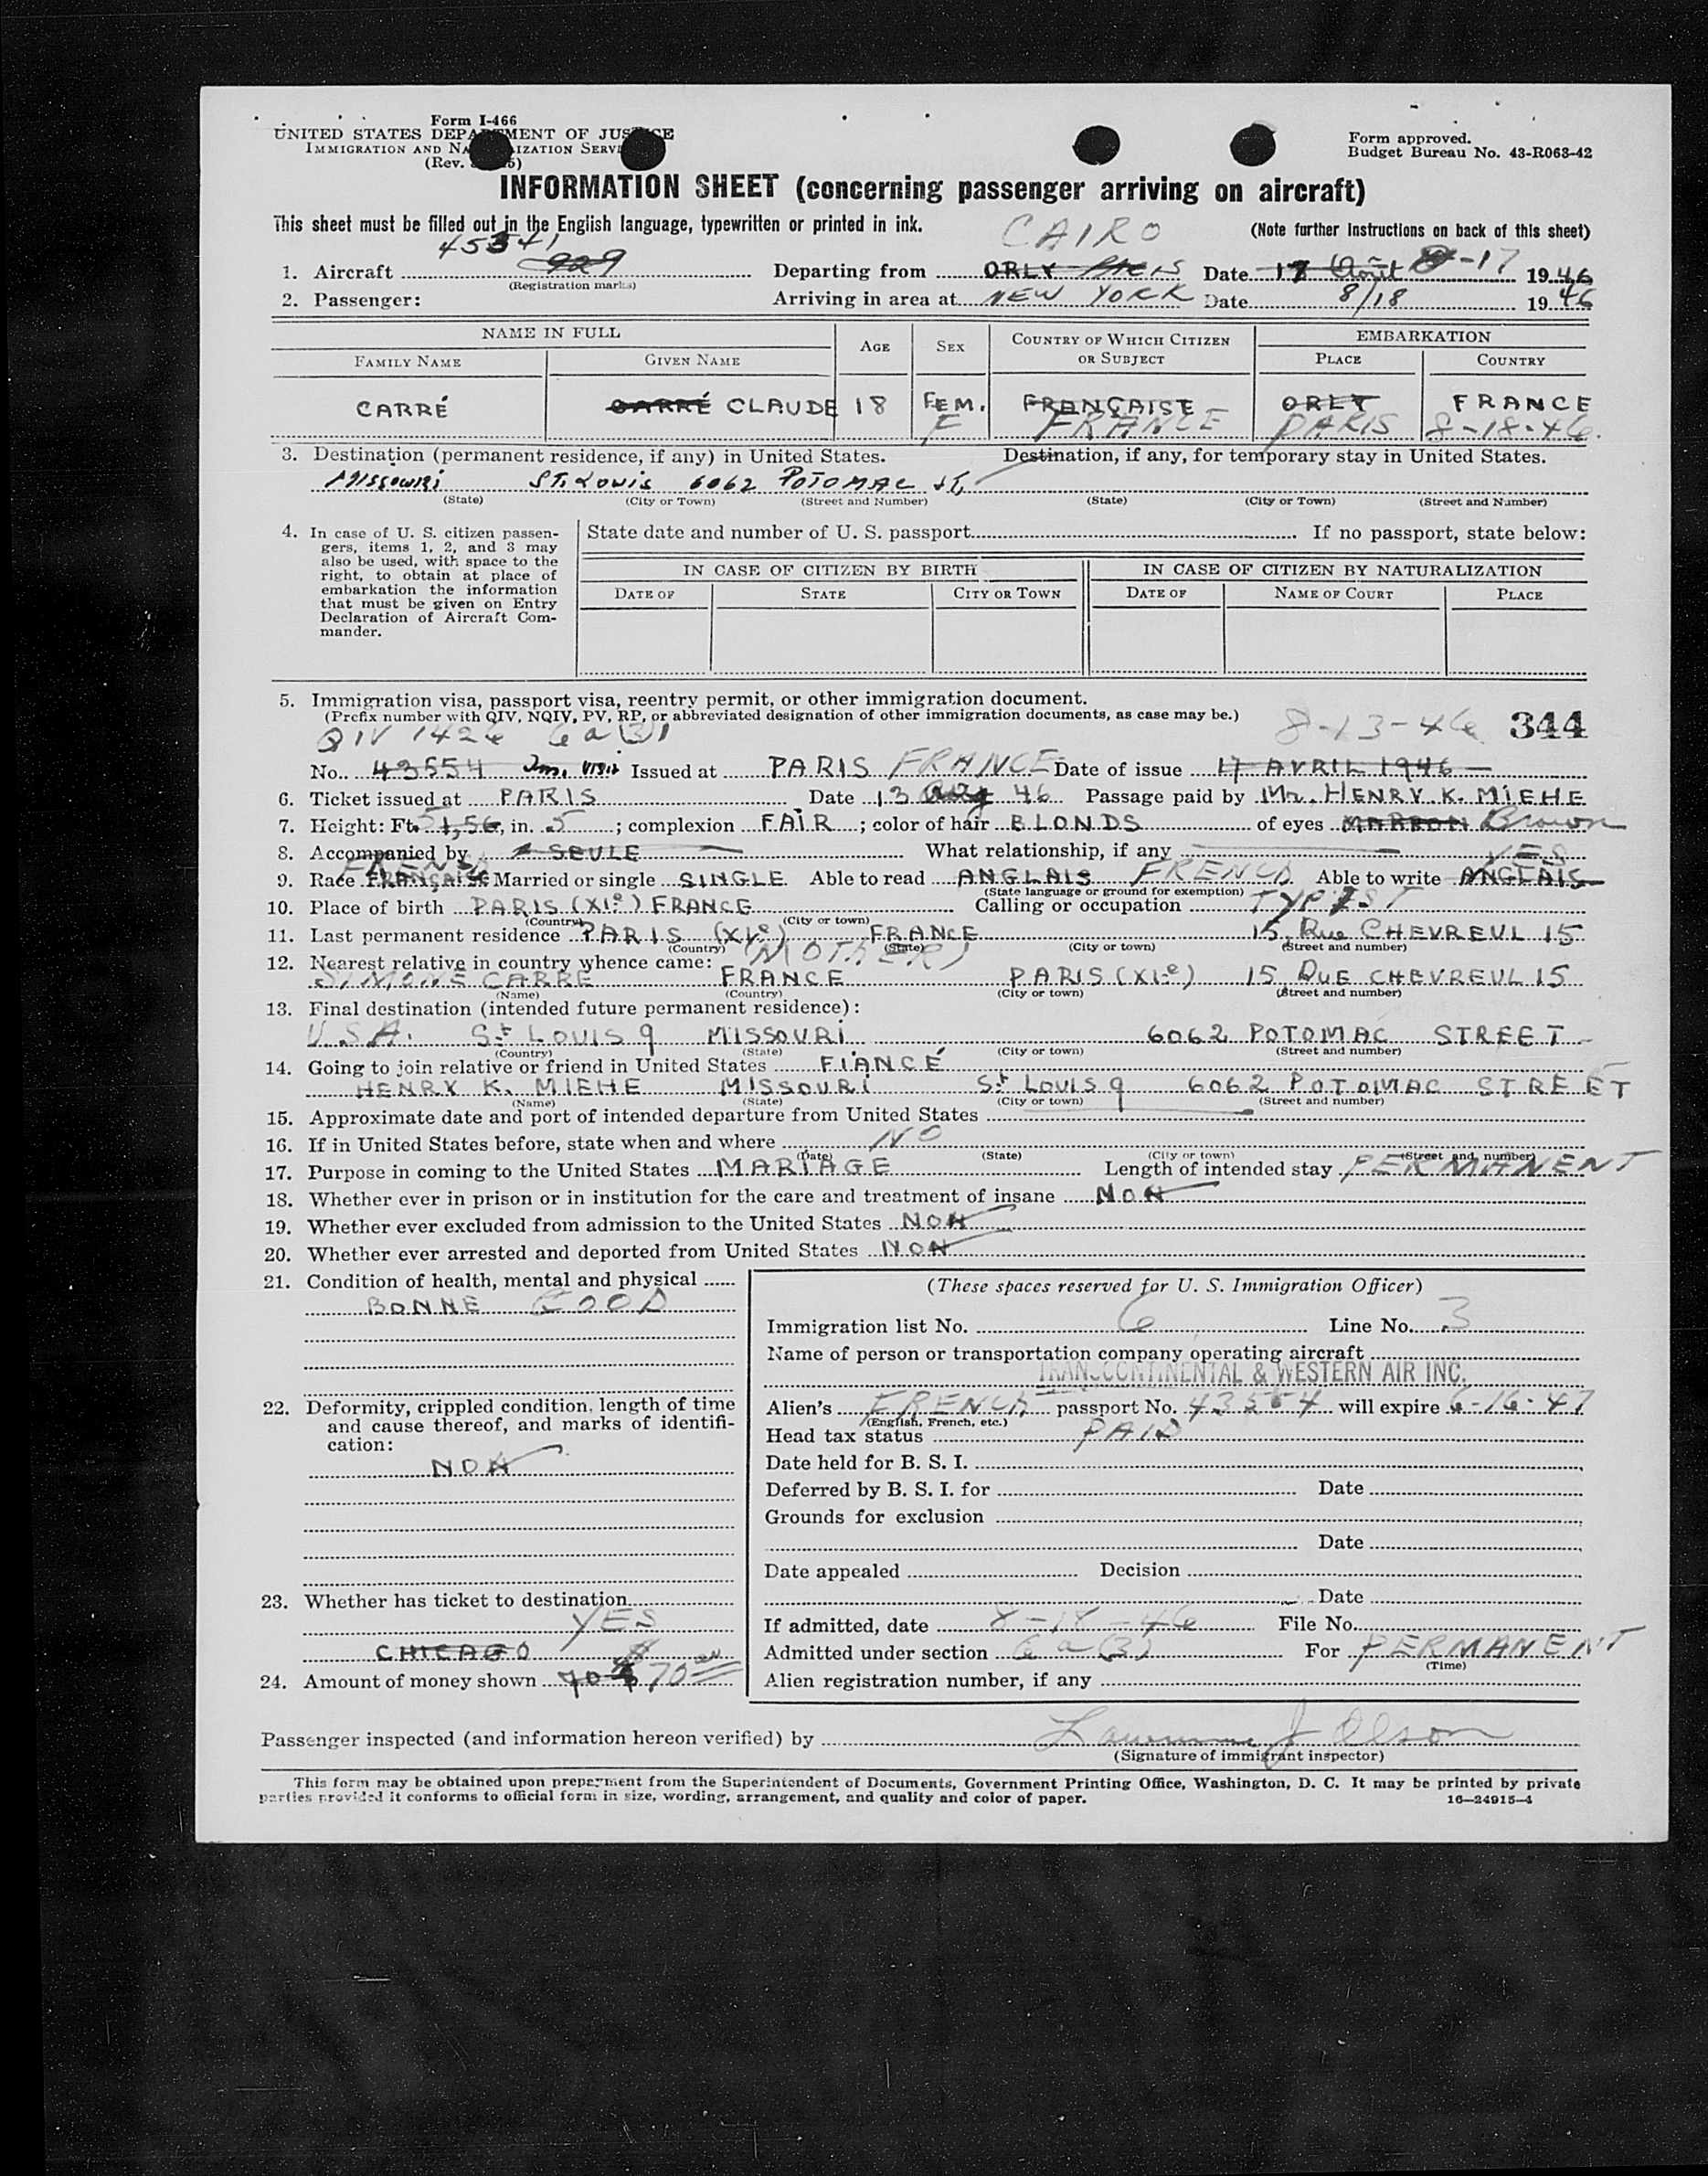 Form I-466
UNITED STATES DEPARTMENT OF JUSTICE
IMMIGRATION AND NATURALIZATION SERVICE
(Rev.
Form approved.
Budget Bureau No. 43-R063-42
INFORMATION SHEET (concerning passenger arriving on aircraft)
This sheet must be filled out in the English language, typewritten or printed in ink. CAIRO (Note further instructions on back of this sheet)
45341
1. Aircraft 929 Departing from ORLY PARIS Date 17 Août 8-17 1946
(Registration marks)
2. Passenger: Arriving in area at NEW YORK Date 8/18 1946
NAME IN FULL AGE SEX COUNTRY OF WHICH CITIZEN OR SUBJECT EMBARKATION
FAMILY NAME GIVEN NAME PLACE COUNTRY
CARRÉ CARRÉ CLAUDE 18 FEM. FRANÇAISE ORLY FRANCE
F FRANCE PARIS 8-18-46.
3. Destination (permanent residence, if any) in United States. Destination, if any, for temporary stay in United States.
Missouri St. Louis 6062 POTOMAC St,
(State) (City or Town) (Street and Number) (State) (City or Town) (Street and Number)
4. In case of U. S. citizen passengers, items 1, 2, and 3 may also be used, with space to the right, to obtain at place of embarkation the information that must be given on Entry Declaration of Aircraft Commander.
State date and number of U. S. passport If no passport, state below:
IN CASE OF CITIZEN BY BIRTH IN CASE OF CITIZEN BY NATURALIZATION
DATE OF STATE CITY OR TOWN DATE OF NAME OF COURT PLACE
5. Immigration visa, passport visa, reentry permit, or other immigration document.
(Prefix number with QIV, NQIV, PV, RP, or abbreviated designation of other immigration documents, as case may be.)
QIV 1426 6a(3) 8-13-46 344
No. 43554 Im. visit Issued at PARIS FRANCE Date of issue 17 AVRIL 1946
6. Ticket issued at PARIS Date 13 Aug 46 Passage paid by Mr. HENRY K. MIEHE
7. Height: Ft. 5 1,56, in. 5; complexion FAIR; color of hair BLONDS of eyes MARRON Brown
8. Accompanied by SEULE What relationship, if any
FRENCH YES
9. Race FRANÇAISE Married or single SINGLE Able to read ANGLAIS FRENCH Able to write ANGLAIS
(State language or ground for exemption)
10. Place of birth PARIS (XIe) FRANCE Calling or occupation TYPIST
(Country) (City or town)
11. Last permanent residence PARIS (XIe) FRANCE 15 Rue CHEVREUL 15
(Country) (State) (City or town) (Street and number)
12. Nearest relative in country whence came: (MOTHER)
SIMONE CARRE FRANCE PARIS (XIe) 15 RUE CHEVREUL 15
(Name) (Country) (City or town) (Street and number)
13. Final destination (intended future permanent residence):
U.S.A. St LOUIS 9 MISSOURI 6062 POTOMAC STREET
(Country) (State) (City or town) (Street and number)
14. Going to join relative or friend in United States FIANCÉ
HENRY K. MIEHE MISSOURI St LOUIS 9 6062 POTOMAC STREET
(Name) (State) (City or town) (Street and number)
15. Approximate date and port of intended departure from United States
16. If in United States before, state when and where NO
(Date) (State) (City or town) (Street and number)
17. Purpose in coming to the United States MARIAGE Length of intended stay PERMANENT
18. Whether ever in prison or in institution for the care and treatment of insane NON
19. Whether ever excluded from admission to the United States NON
20. Whether ever arrested and deported from United States NON
21. Condition of health, mental and physical
BONNE GOOD
22. Deformity, crippled condition, length of time and cause thereof, and marks of identification:
NON
23. Whether has ticket to destination
YES
CHICAGO
24. Amount of money shown 70 $ $70.00
(These spaces reserved for U. S. Immigration Officer)
Immigration list No. 6 Line No. 3
Name of person or transportation company operating aircraft
TRANSCONTINENTAL & WESTERN AIR INC.
Alien's FRENCH passport No. 43554 will expire 6-16-47
(English, French, etc.)
Head tax status PAID
Date held for B. S. I.
Deferred by B. S. I. for Date
Grounds for exclusion
Date
Date appealed Decision
Date
If admitted, date 8-18-46 File No.
Admitted under section 6a(3) For PERMANENT
(Time)
Alien registration number, if any
Passenger inspected (and information hereon verified) by Lawrence J Olson
(Signature of immigrant inspector)
This form may be obtained upon prepayment from the Superintendent of Documents, Government Printing Office, Washington, D. C. It may be printed by private
parties provided it conforms to official form in size, wording, arrangement, and quality and color of paper. 16—24915-4